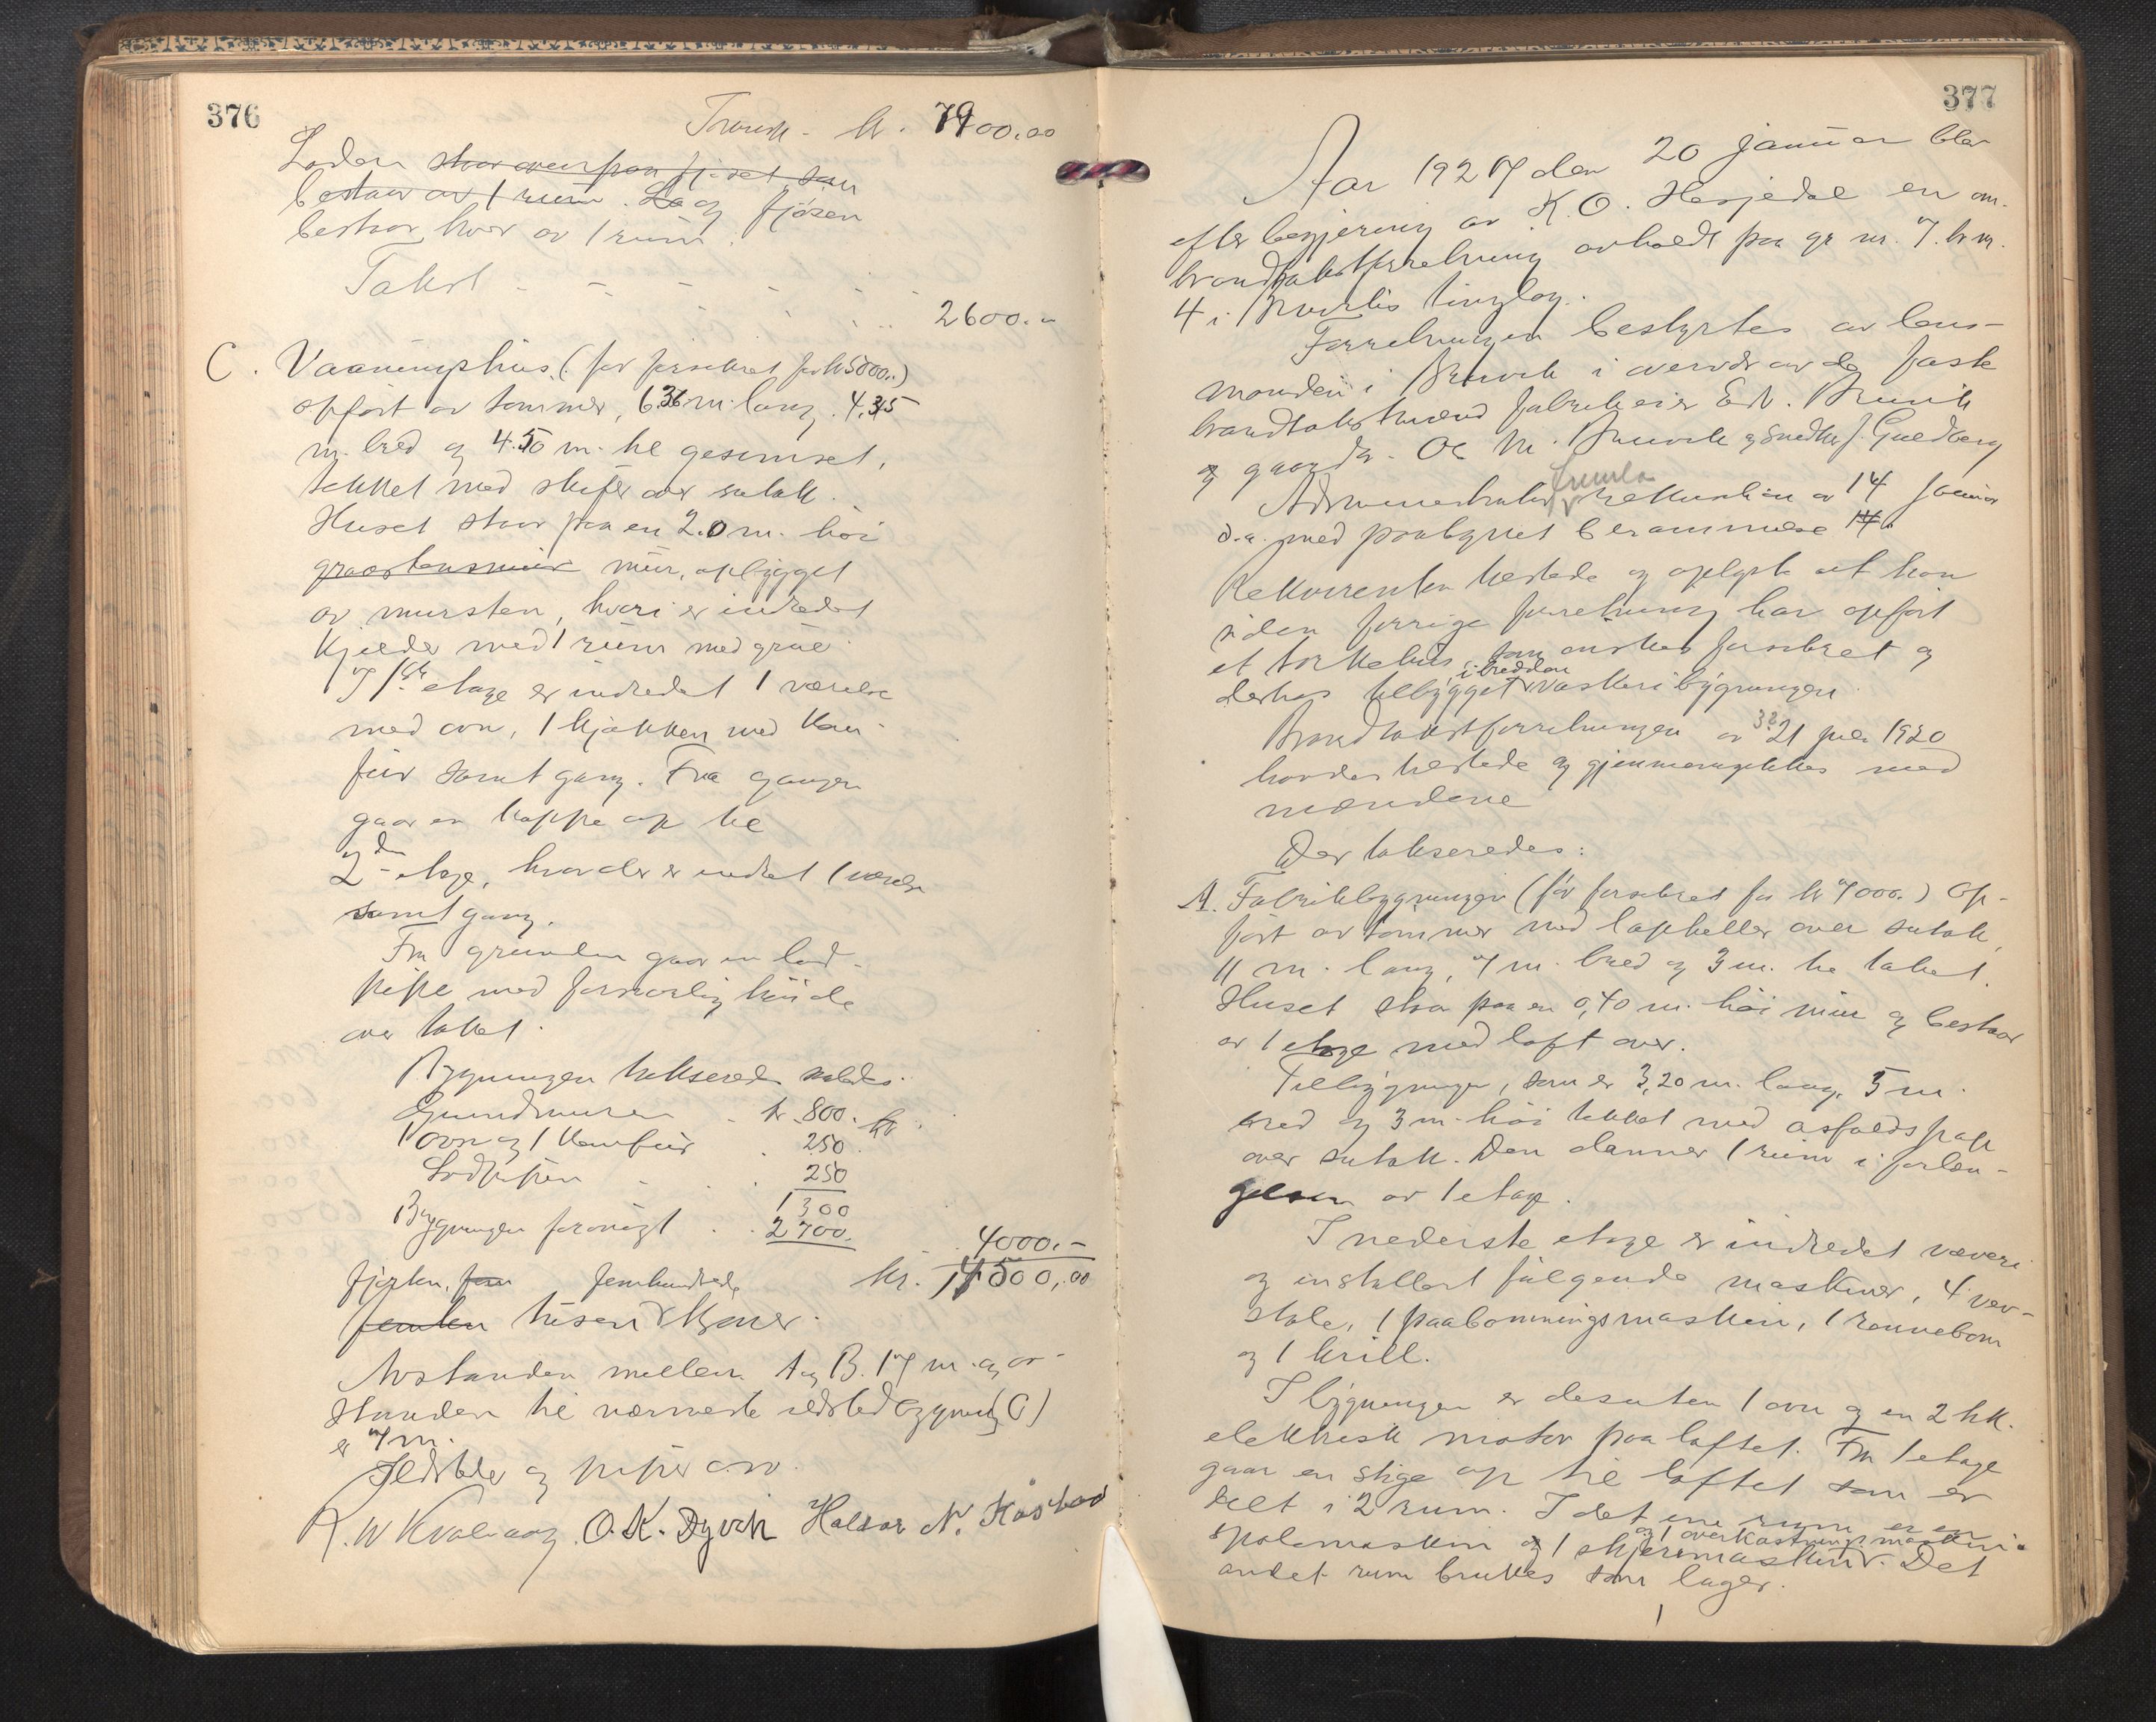 376
Transp. kr. 7900.00
Loden staar ovenpaa fjøset som
bestaar av 1 rum. La og fjøsen
bestaar hver av 1 rum.
Takst - - - - - -
2600.-
C. Vaaningshus. (før forsikret for kr 5000.-)
opført av tømmer, 6.36 m. lang. 4.35
m. bred og 4.50 m. til gesimset,
tækket med skifer over sutak.
Huset staar paa en 2.0 m. høi
graastensmur mur, opbygget
av mursten, hvori er indredet
kjelder med 1 rum med grue.
I 1ste etage er indredet 1 værelse
med ovn, 1 kjøkken med kom-
fur samt gang. Fra gangen
gaar en trappe op til
2den etage, hvor der er indret 1 værelse
samt gang.
Fra grunden gaar en lod-
pipe med forsvarlig høide
over taket.
Bygningen takseredes saaledes.
Grundmuren - kr. 800. kr.
1 ovn og 1 komfur . 250
Lodpipen - . . 250
1300
Bygningen forøvrigt . . 2700.
4000.-
fjorten, fem femhundrede kr. 14500,00
femten tusen kroner.
Avstanden mellem A og B. 17 m. og av-
standen til nærmeste ildsted bygning (C)
er 7 m.
Ildsteder og piper o.s.v.
R. W Kvalvaag. O. K. Dyvik Haldor N. Kosbad
377
Aar 1927 den 20 januar blev
efter begjæring av K. O. Hesjedal en om-
brandtakstforretning avholdt paa gr nr. 7. br. nr.
4 i Bruviks tinglag.
Forretningen bestyrtes av lens-
manden i Bruvik i overvær av de faste
brandtakstmænd fabrikeier Edv. Bruvik
og gaardbr. Ok M. Bruvik og snedker J. Guldberg
Administrator fremla rekvisition av 14 januar
d.a. med paategnet berammelse 14.
Rekvirenten tilstede og oplyste at han
siden forrige forretning har opført
et tørkehus, som ønskes forsikret og
i bredden
derhos tilbygget vaskeribygningen.
Brandtakstforretningen av 21 juli 1920
havdes tilstede og gjennemgikkes med
mændene
Der takseredes:
A. Fabrikbygningen (før forsikret for kr 7000.) Op-
ført av tømmer med lapheller over sutak,
11 m. lang, 7 m. bred og 3 m. til taket.
Huset staar paa en 0,40 m. høi mur og bestaar
av 1 etage med loft over.
Tilbygningen, som er 3,20 m. lang, 5 m.
bred og 3 m. høi tækket med asfaldspap
over sutak. Den danner 1 rum i forlæn-
gelsen av 1 etage.
I nederste etage er indredet væveri
og installert følgende maskiner, 4 væv-
stole, 1 paabomningsmaskin, 1 rennebom
og 1 krill.
I bygningen er desuten 1 ovn og en 2 hk.
elektrisk motor paa loftet. Fra 1 etage
gaar en stige op til loftet som er
delt i 2 rum. I det ene rum er en
og 1 overkastningsmaskin.
spolemaskin og 1 skjæremaskin. Det
andet rum brukes som lager.